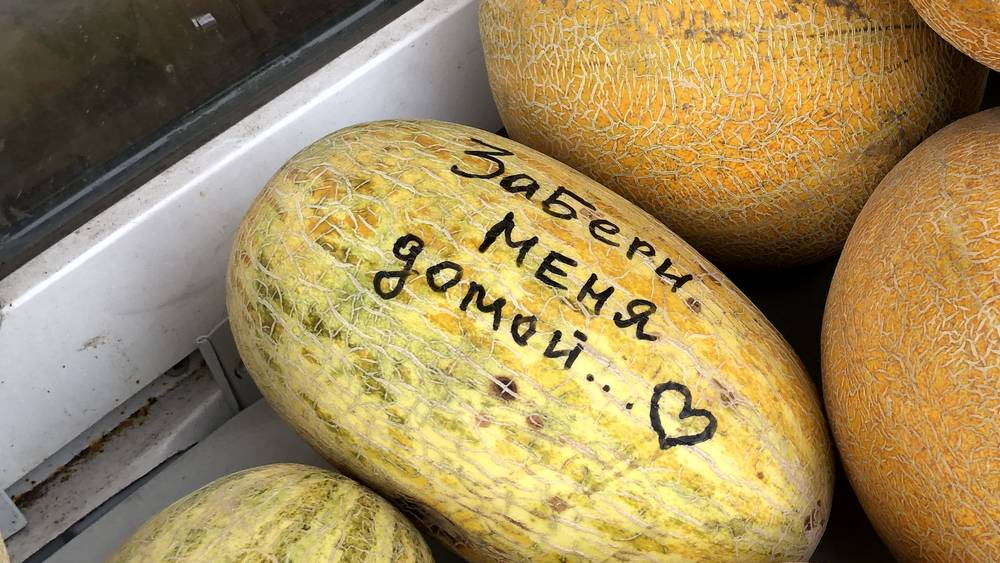 Забери
меня
домой... ♡